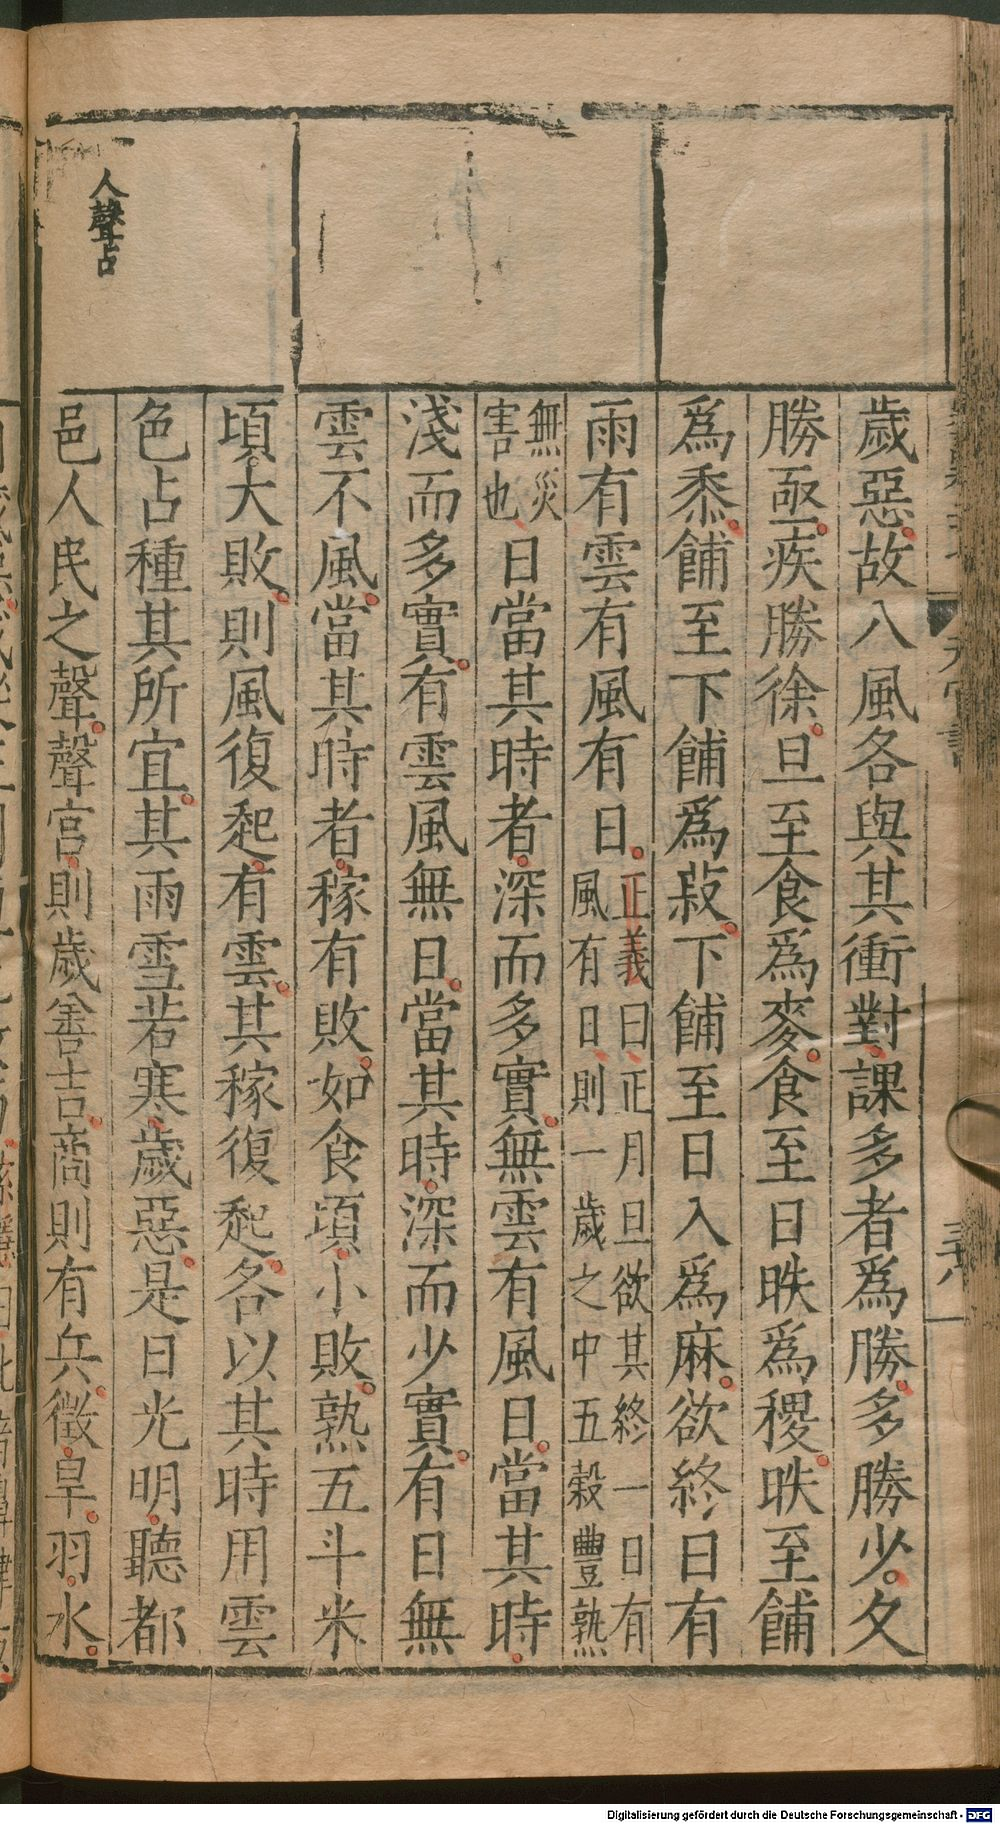 歲惡故八風各與其衝對課多者爲勝多勝少久
勝亟疾勝徐旦至食爲麥食至日昳爲稷昳至餔
爲黍餔至下餔爲菽下餔至日入爲麻欲終日有
雨有雲有風有日正義曰正月旦欲其終一日有
風有日則一歲之中五穀豐熟
無災
害也日當其時者深而多實無雲有風日當其時
淺而多實有雲風無日當其時深而少實有日無
雲不風當其時者稼有敗如食頃小敗熟五斗米
頃大敗則風復起有雲其稼復起各以其時用雲
色占種其所宜其雨雪若寒歲惡是日光明聽都
邑人民之聲聲宮則歲善吉商則有兵徵旱羽水
人聲占
天官書
Digitalisierung gefördert durch die Deutsche Forschungsgemeinschaft - DFG